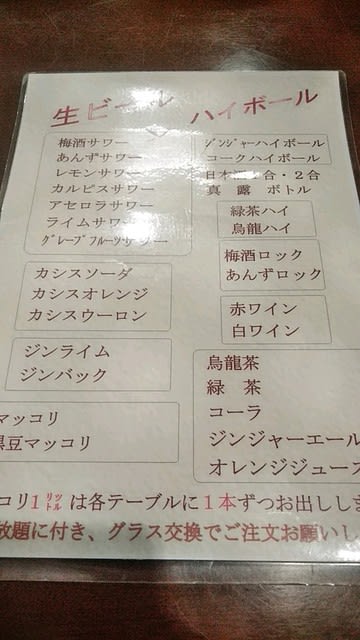 生ビール
ハイボール
梅酒サワー
あんずサワー
レモンサワー
カルピスサワー
アセロラサワー
ライムサワー
グレープフルーツサワー
カシスソーダ
カシスオレンジ
カシスウーロン
ジンライム
ジンバック
マッコリ
黒豆マッコリ
ジンジャーハイボール
コークハイボール
日本酒1合・2合
真露ボトル
緑茶ハイ
烏龍ハイ
梅酒ロック
あんずロック
赤ワイン
白ワイン
烏龍茶
緑茶
コーラ
ジンジャーエール
オレンジジュース
コリ1リットルは各テーブルに1本ずつお出ししま
放題に付き、グラス交換でご注文お願いし